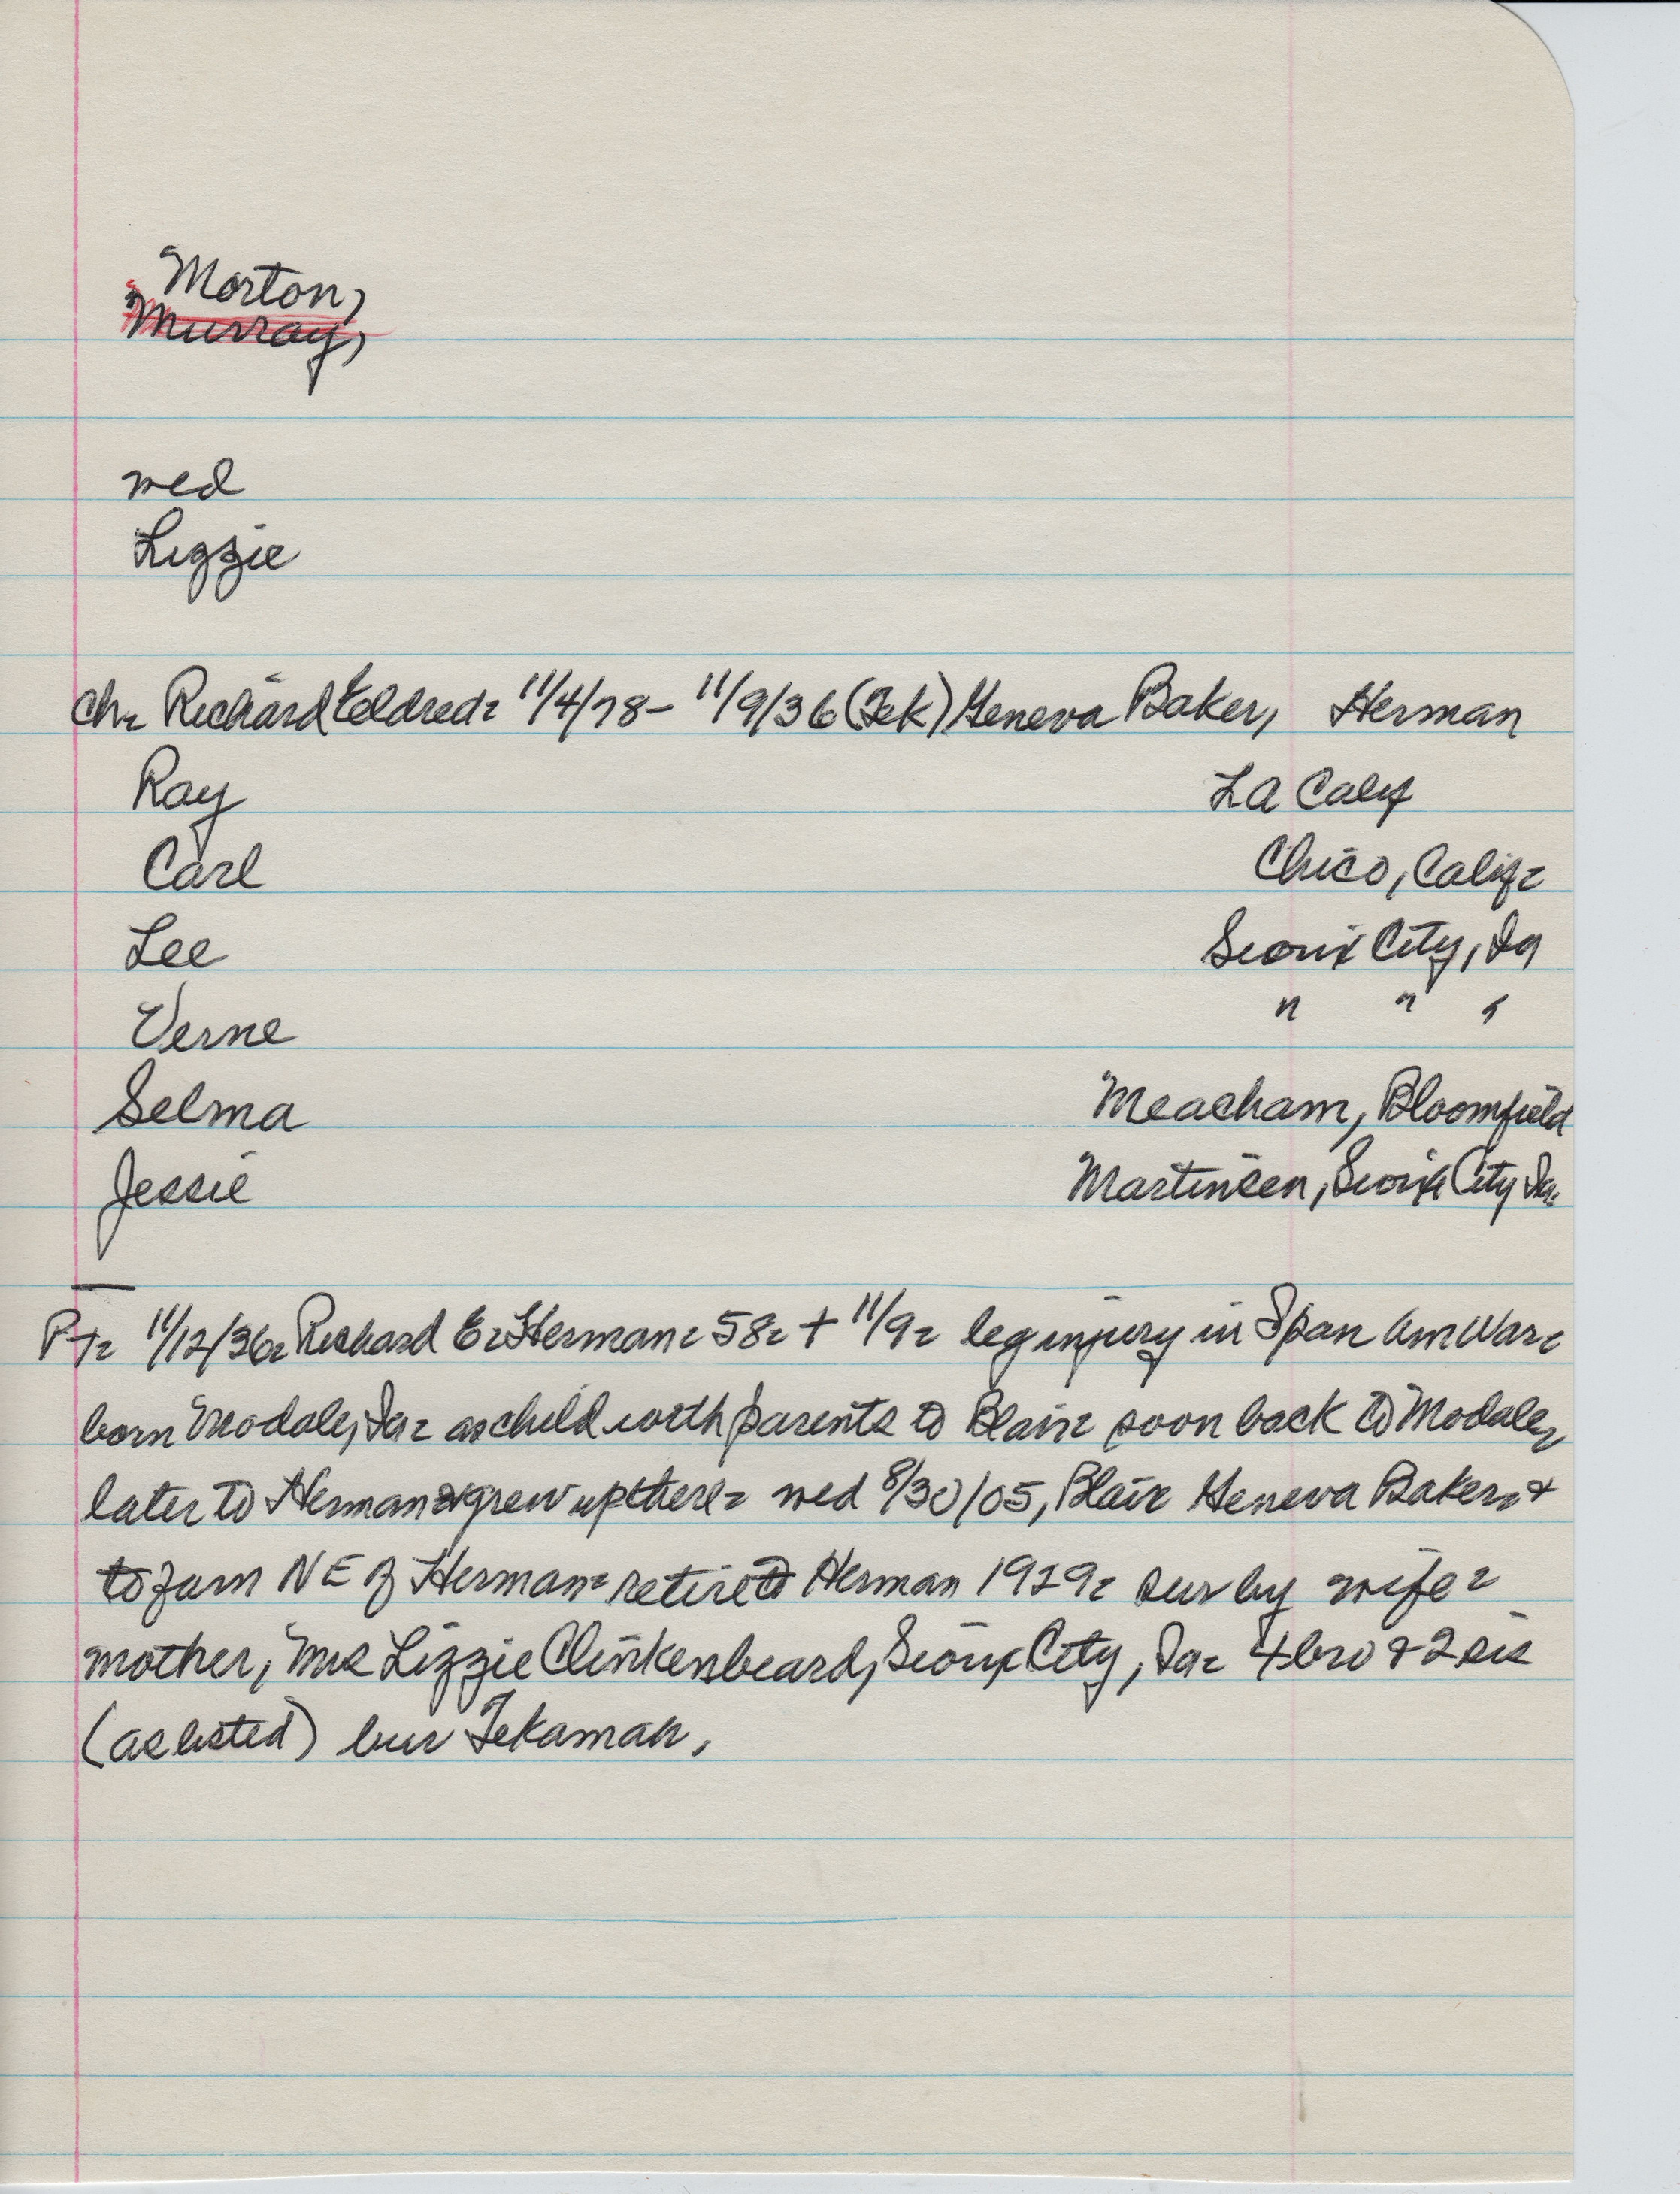 Morton,
Murray,
wed
Lizzie
Ch- Richard Eldred- 11/4/78- 11/9/36 (Tek) Geneva Baker, Herman
Ray LA Calif
Carl Chico, Calif-
Lee Sioux City, Ia
Verne " " "
Selma Meacham, Bloomfield
Jessie Martinsen, Sioux City Ia-
PT- 11/12/36- Richard E- Herman- 58- + 11/9- leg injury in Span Am War-
born Modale, Ia- as child with parents to Blair- soon back to Modale,
later to Herman & grew up there- wed 8/30/05, Blair Geneva Baker- &
to farm NE of Herman- retire to Herman 1929- sur by wife-
mother, Mrs Lizzie Clinkenbeard, Sioux City, Ia- 4 bro & 2 sis
(as listed) bur Tekamah,